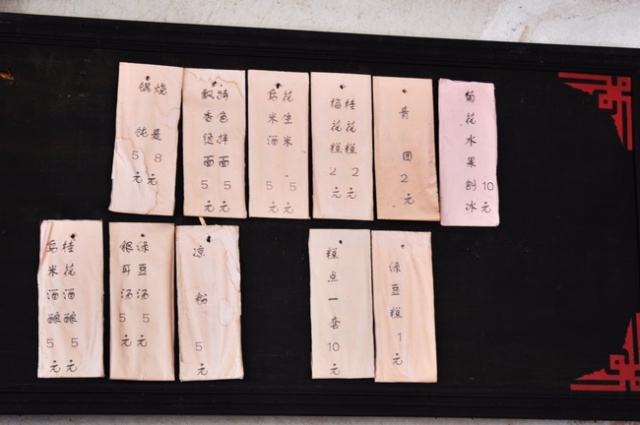 烧 8元
馄饨 5元
色拌面 5元
香 面 5元
花生米 5元
乌米酒 5元
桂花糕 2元
梅花糕 2元
青团 2元
菊花水果刨冰 10元
桂花酒酿 5元
乌米酒酿 5元
绿豆汤 5元
银耳汤 5元
凉粉 5元
糕点一套 10元
绿豆糕 1元